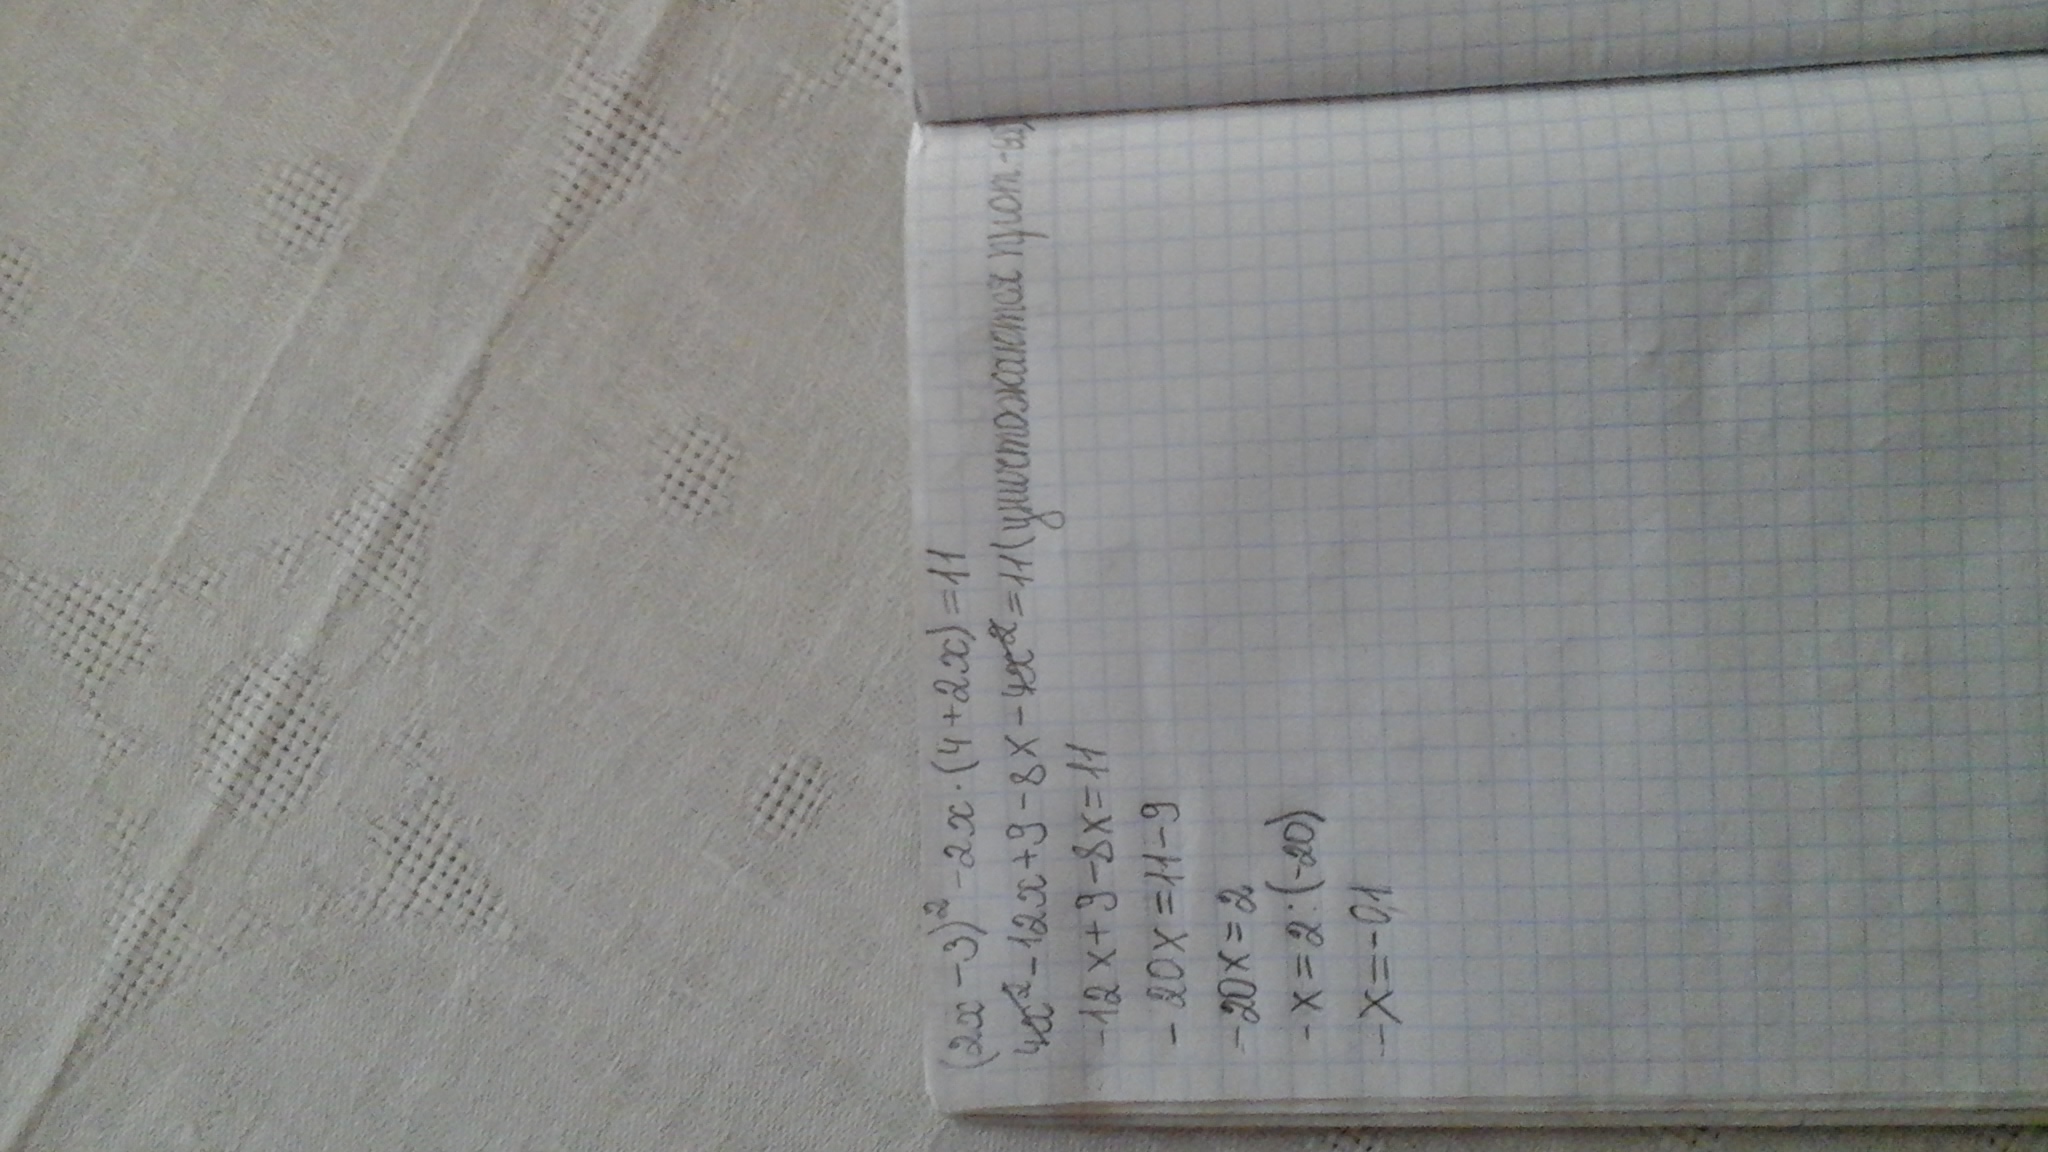 (2x-3)²-2x·(4+2x)=11
4x²-12x+9-8x-4x²=11(уничтожаются
-12x+9-8x=11
-20x=11-9
-20x=2
-x=2:(-20)
-x=-0,1